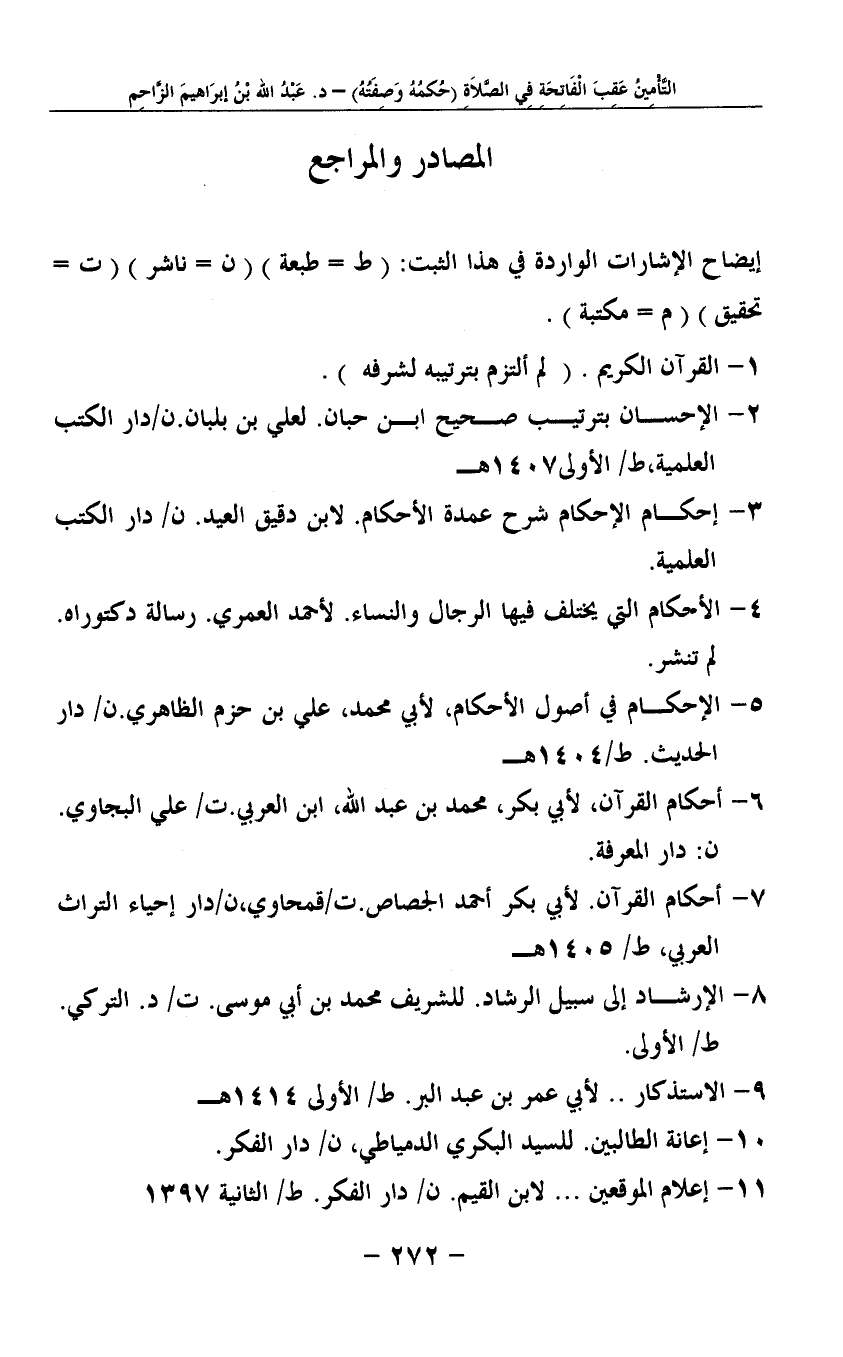 التَّأْمِينُ عَقِبَ الْفَاتِحَةِ فِي الصَّلاَةِ (حُكْمُهُ وَصِفَتُهُ) – د. عَبْدُ الله بْنُ إبرَاهيمَ الزَّاحِم
المصادر والمراجع
إيضاح الإشارات الواردة في هذا الثبت: ( ط = طبعة ) ( ن = ناشر ) ( ت =
تحقيق ) ( م = مكتبة ) .
١- القرآن الكريم . ( لم ألتزم بترتيبه لشرفه ) .
٢- الإحســـان بترتيـــب صـــحيح ابـــن حبان. لعلي بن بلبان.ن/دار الكتب
العلمية،ط/ الأولى١٤٠٧هــ
٣- إحكـــام الإحكام شرح عمدة الأحكام. لابن دقيق العيد. ن/ دار الكتب
العلمية.
٤- الأحكام التي يختلف فيها الرجال والنساء. لأحمد العمري. رسالة دكتوراه.
لم تنشر.
٥- الإحكـــام في أصول الأحكام، لأبي محمد، علي بن حزم الظاهري.ن/ دار
الحديث. ط/١٤٠٤هــ
٦- أحكام القرآن، لأبي بكر، محمد بن عبد الله، ابن العربي.ت/ علي البجاوي.
ن: دار المعرفة.
٧- أحكام القرآن. لأبي بكر أحمد الجصاص.ت/قمحاوي،ن/دار إحياء التراث
العربي، ط/ ١٤٠٥هــ
٨- الإرشـــاد إلى سبيل الرشاد. للشريف محمد بن أبي موسى. ت/ د. التركي.
ط/ الأولى.
٩- الاستذكار .. لأبي عمر بن عبد البر. ط/ الأولى ١٤١٤هــ
١٠- إعانة الطالبين. للسيد البكري الدمياطي، ن/ دار الفكر.
١١- إعلام الموقعين ... لابن القيم. ن/ دار الفكر. ط/ الثانية ١٣٩٧
– ٢٧٢ –